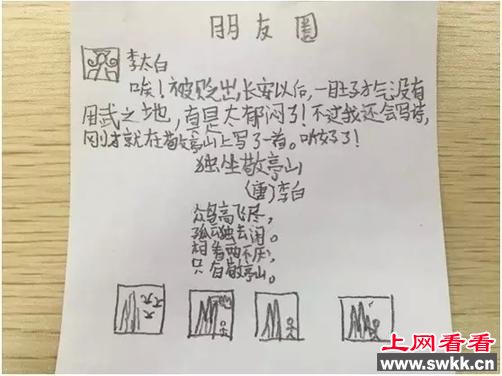 朋友圈
李太白
唉！被贬出长安以后，一肚子才气没有
用武之地，真是太郁闷了！不过我还会写诗，
刚才就在敬亭山上写了一首。听好了！
独坐敬亭山
(唐)李白
众鸟高飞尽，
孤云独去闲。
相看两不厌，
只有敬亭山。
上网看看
www.swkk.cn